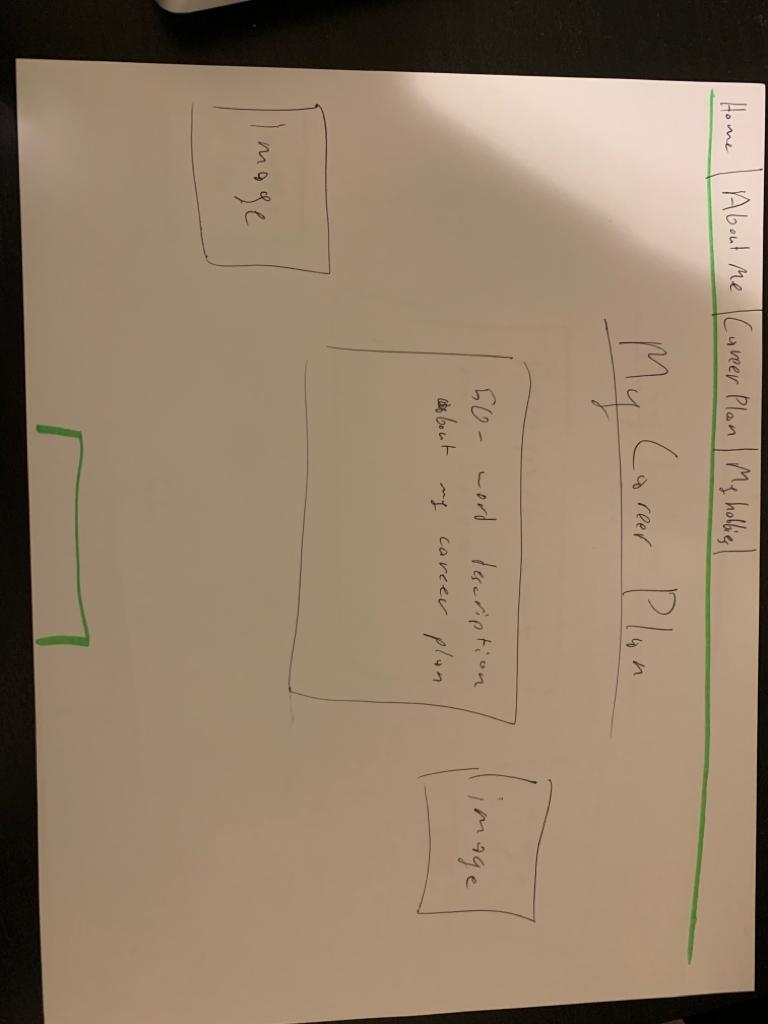 Home | About Me | Career Plan | My hobbies |
My Career Plan
50-word description
about my career plan
image
Image